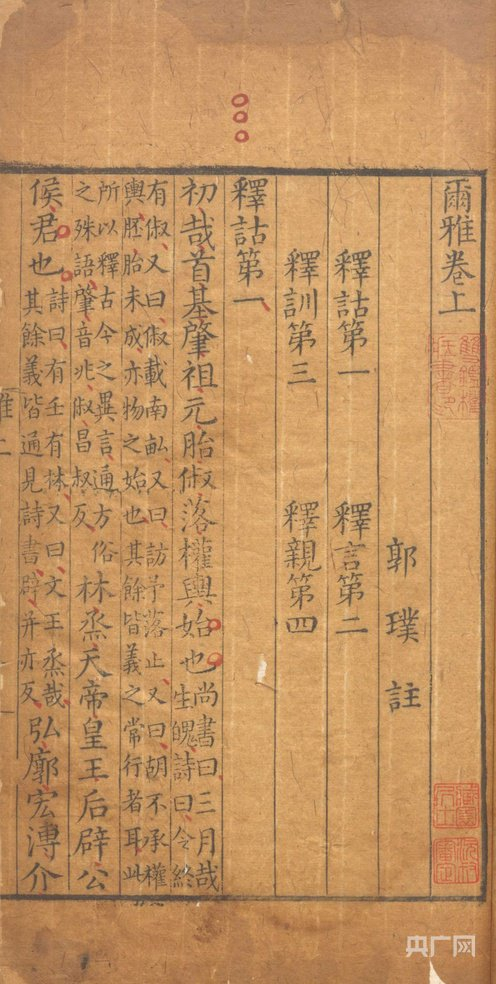 爾雅卷上
郭璞註
釋詁第一 釋言第二
釋訓第三 釋親第四
釋詁第一
初哉首基肇祖元胎俶落權輿始也尚書曰三月哉
生魄詩曰令終
有俶又曰俶載南畝又曰訪予落止又曰胡不承權
輿胚胎未成亦物之始也其餘皆義之常行者耳此
所以釋古今之異言通方俗
之殊語肇音兆俶昌叔反林烝天帝皇王后辟公
侯君也詩曰有壬有林又曰文王烝哉
其餘義皆通見詩書辟并亦反弘廓宏溥介
央广网